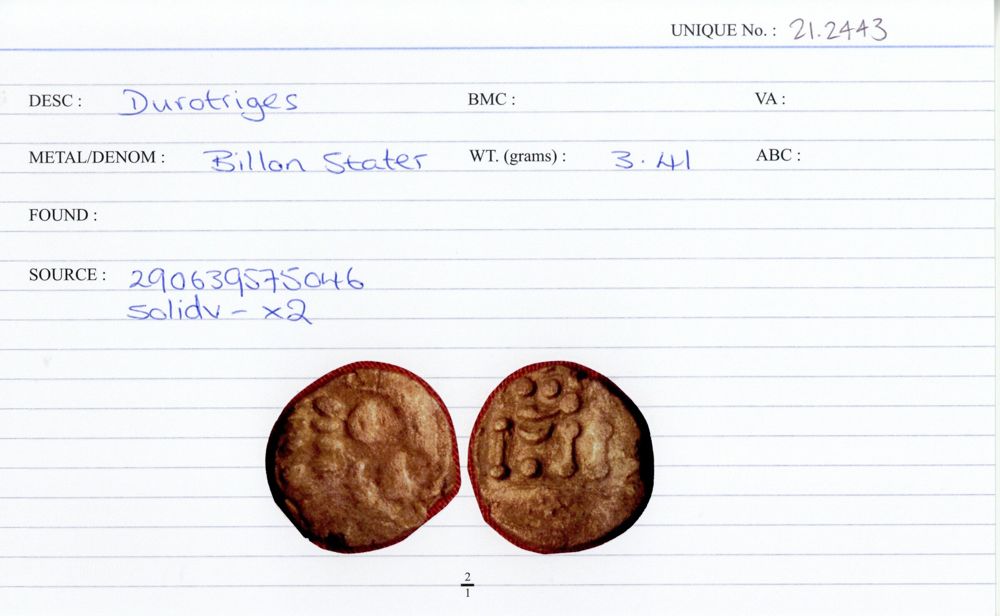 UNIQUE No. : 21.2443
DESC : Durotriges BMC : VA :
METAL/DENOM : Billon Stater WT. (grams) : 3.41 ABC :
FOUND :
SOURCE : 290639575046
solidv - x2
2
1